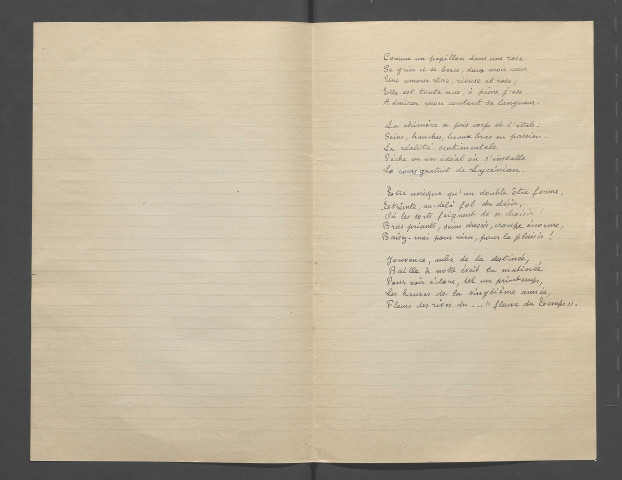 Comme un papillon dans une rose
Se grise et se berce, dans mon cœur
Une amour rêve, rieuse et rose;
Elle est toute nue, à peine j'ose
Admirer mon content sa langueur.

La chimère a pris corps et s'étale:
Seins, hanches, beaux bras en passion.
La réalité sentimentale
Pèche en un idéal où s'installe
Le corps gratuit de Lycénion.

Être unique qu'un double être forme,
Étreinte, au-delà fol du désir,
Où les sorts feignent de se choisir!
Bras priants, seins dressés, croupe énorme,
Baisez-moi pour rien, pour le plaisir!

Jouvence, aube de la destinée,
Baille à notre éveil la matinée
Pour voir éclore, tel un printemps,
Les heures de la vingtième année,
Fleurs des rives du... "fleuve du Temps".